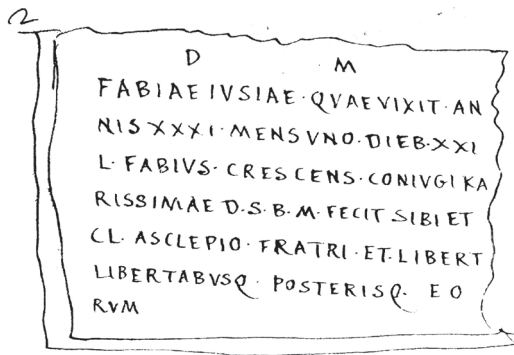 2
D M
FABIAE IVSIAE · QVAEVIXIT · AN
NIS XXXI · MENS VNO · DIEB · XXI
L · FABIVS · CRESCENS · CONIVGI KA
RISSIMAE D · S · B · M · FECIT SIBI ET
CL · ASCLEPIO · FRATRI · ET · LIBERT
LIBERTABVSQ · POSTERISQ · EO
RVM